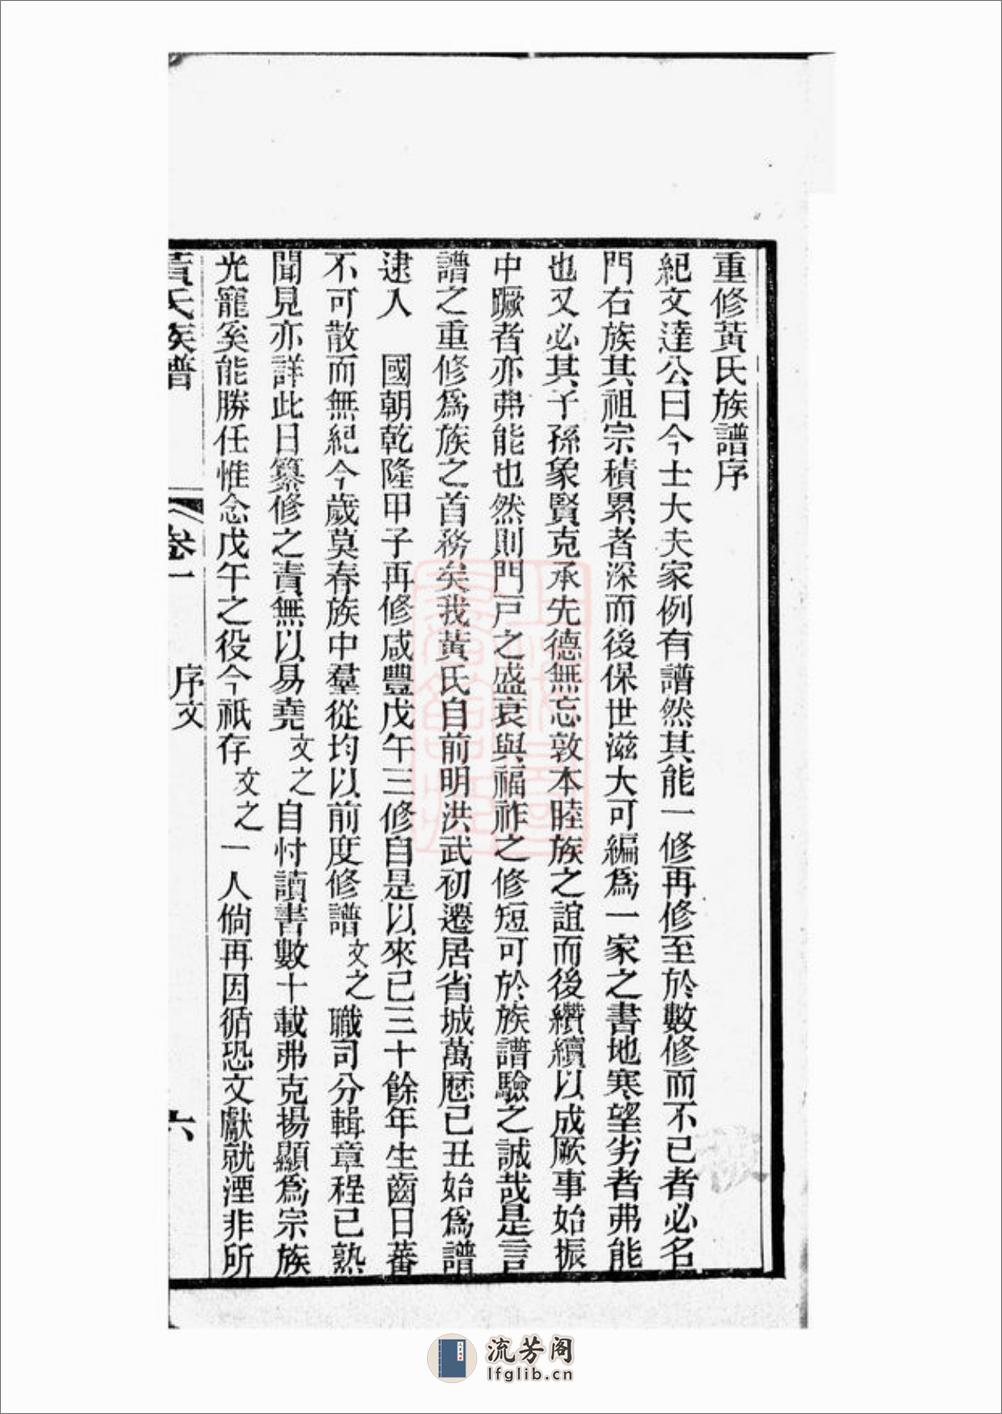 重修黃氏族譜序
紀文達公曰今士大夫家例有譜然其能一修再修至於數修而不已者必名
門右族其祖宗積累者深而後保世滋大可編爲一家之書地寒望劣者弗能
也又必其子孫象賢克承先德無忘敦本睦族之誼而後纘續以成厥事始振
中蹶者亦弗能也然則門戸之盛衰與福祚之修短可於族譜驗之誠哉是言
譜之重修爲族之首務矣我黃氏自前明洪武初遷居省城萬厯己丑始爲譜
逮入　國朝乾隆甲子再修咸豐戊午三修自是以來已三十餘年生齒日蕃
不可散而無紀今歲莫春族中羣從均以前度修譜文之職司分輯章程已熟
聞見亦詳此日纂修之責無以易堯文之自忖讀書數十載弗克揚顯爲宗族
光寵奚能勝任惟念戊午之役今祇存文之一人倘再因循恐文獻就湮非所
黃氏族譜
卷一
序文
六
流芳阁
lfglib.cn